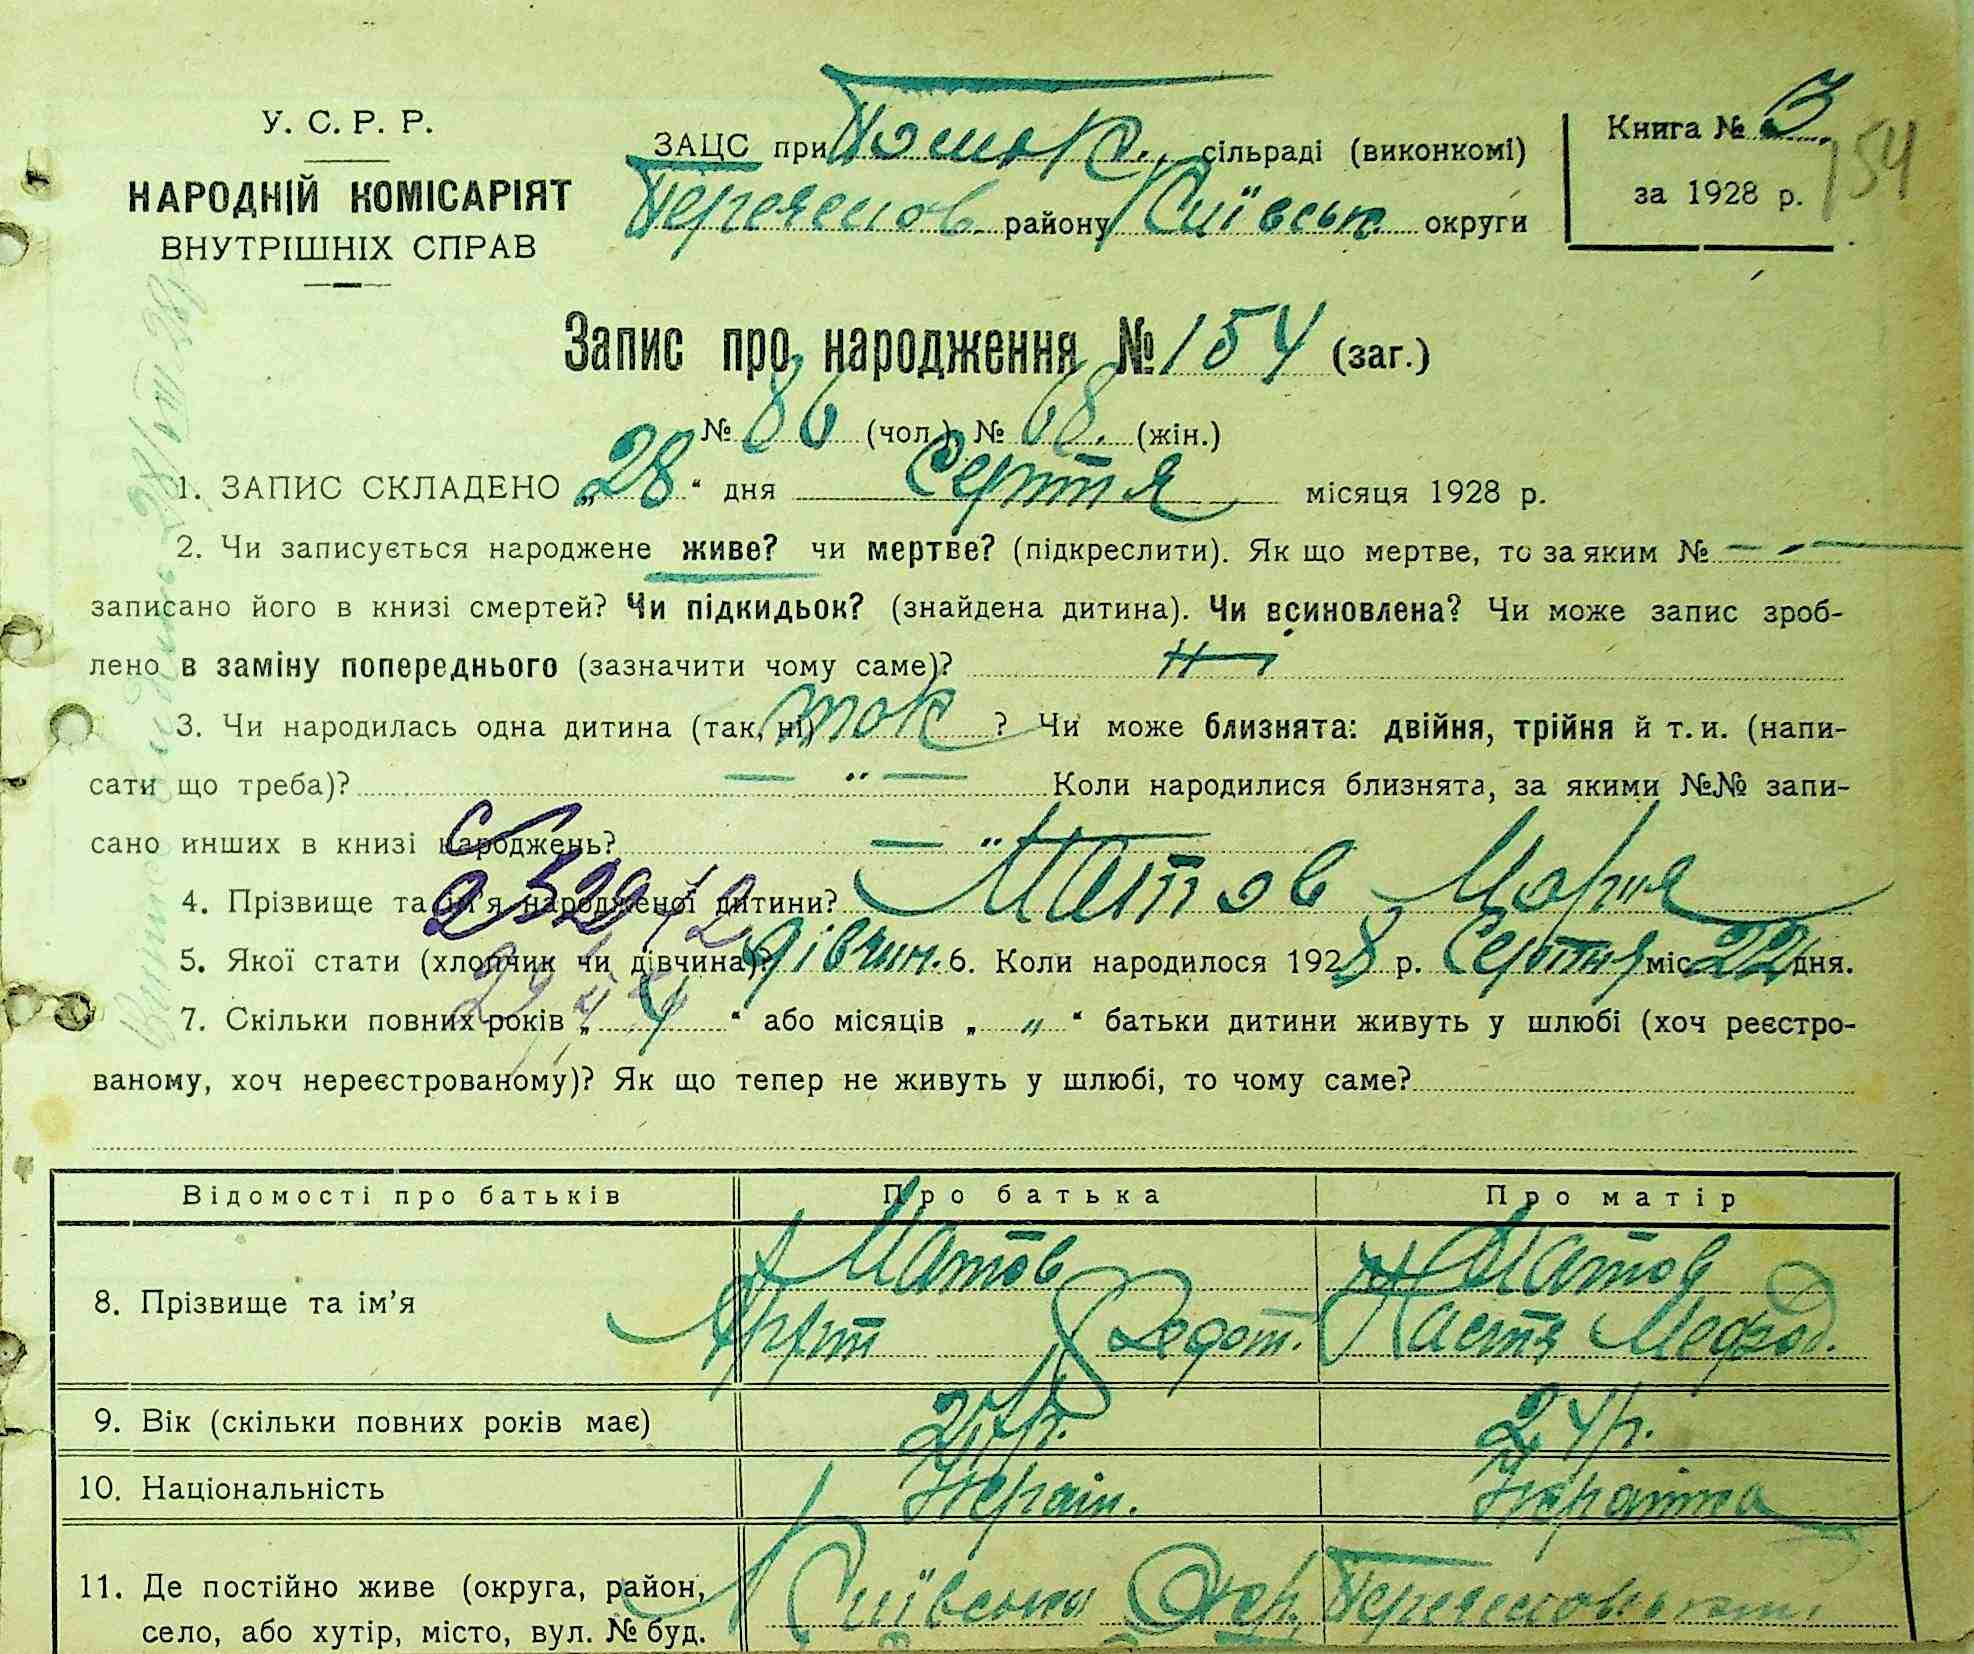 У. С. Р. Р.
НАРОДНІЙ КОМІСАРІЯТ
ВНУТРІШНІХ СПРАВ
ЗАЦС при сільраді (виконкомі)
району Київськ. округи
Книга № 3
за 1928 р.
154
Запис про народження № 154 (заг.)
№ 86 (чол.) № 68. (жін.)
1. ЗАПИС СКЛАДЕНО „28“ дня Серпня місяця 1928 р.
2. Чи записується народжене живе? чи мертве? (підкреслити). Як що мертве, то за яким № — „ —
записано його в книзі смертей? Чи підкидьок? (знайдена дитина). Чи всиновлена? Чи може запис зроб-
лено в заміну попереднього (зазначити чому саме)? Ні
3. Чи народилась одна дитина (так, ні) так ? Чи може близнята: двійня, трійня й т. и. (напи-
сати що треба)? — „ — Коли народилися близнята, за якими №№ запи-
сано инших в книзі народжень? — „ —
4. Прізвище та ім’я народженої дитини? Матов Марія
5. Якої стати (хлопчик чи дівчина)? дівчин. 6. Коли народилося 1928 р. Серпня міс. 22 дня.
7. Скільки повних років „ 4 “ або місяців „ „ “ батьки дитини живуть у шлюбі (хоч реєстро-
ваному, хоч нереєстрованому)? Як що тепер не живуть у шлюбі, то чому саме?
Відомості про батьків Про батька Про матір
8. Прізвище та ім’я Матов Матов
Федот. Настя
9. Вік (скільки повних років має) 27 р. 24 р.
10. Національність Україн. Українка
11. Де постійно живе (округа, район, Київська Окр.
село, або хутір, місто, вул. № буд.